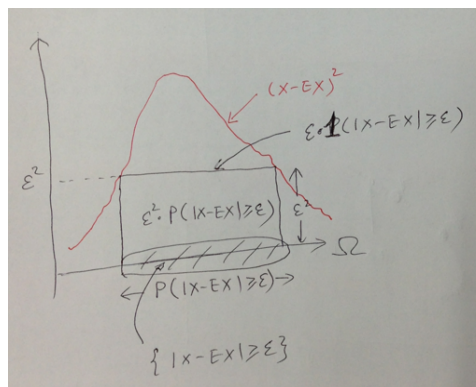 (X-EX)²
ε·1(|X-EX|≥ε)
ε²
ε²·P(|X-EX|≥ε)
ε²
Ω
P(|X-EX|≥ε)
{|X-EX|≥ε}